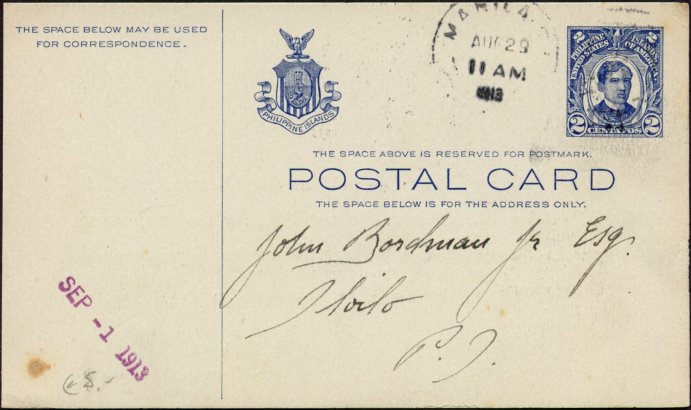 THE SPACE BELOW MAY BE USED
FOR CORRESPONDENCE.
PHILIPPINE ISLANDS
MANILA
AUG 29
11 AM
1913
2 PHILIPPINE ISLANDS 2
UNITED STATES OF AMERICA
2 CENTAVOS 2
THE SPACE ABOVE IS RESERVED FOR POSTMARK.
POSTAL CARD
THE SPACE BELOW IS FOR THE ADDRESS ONLY.
John Bordman Jr Esq.
Iloilo
P.I.
SEP -1 1913